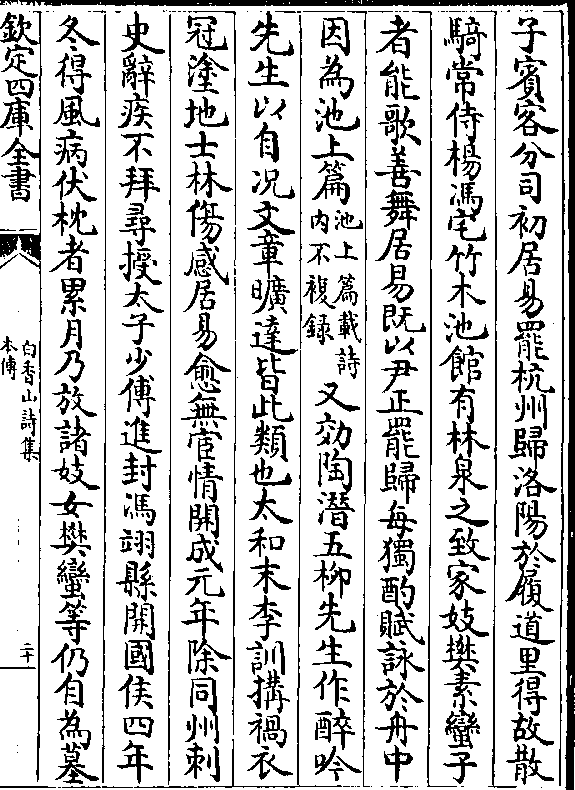 子賓客分司初居易罷杭州歸洛陽於履道里得故散
騎常侍楊馮宅竹木池館有林泉之致家妓樊素蠻子
者能歌善舞居易既以尹正罷歸每獨酌賦詠於舟中
因為池上篇池上篇載詩内不複録又効陶潛五柳先生作醉吟
先生以自況文章曠達皆此類也太和末李訓搆禍衣
冠塗地士林傷感居易愈無宦情開成元年除同州刺
史辭疾不拜尋授太子少傅進封馮翊縣開國侯四年
冬得風病伏枕者累月乃放諸妓女樊蠻等仍自為墓
欽定四庫全書
白香山詩集
本傳
二十